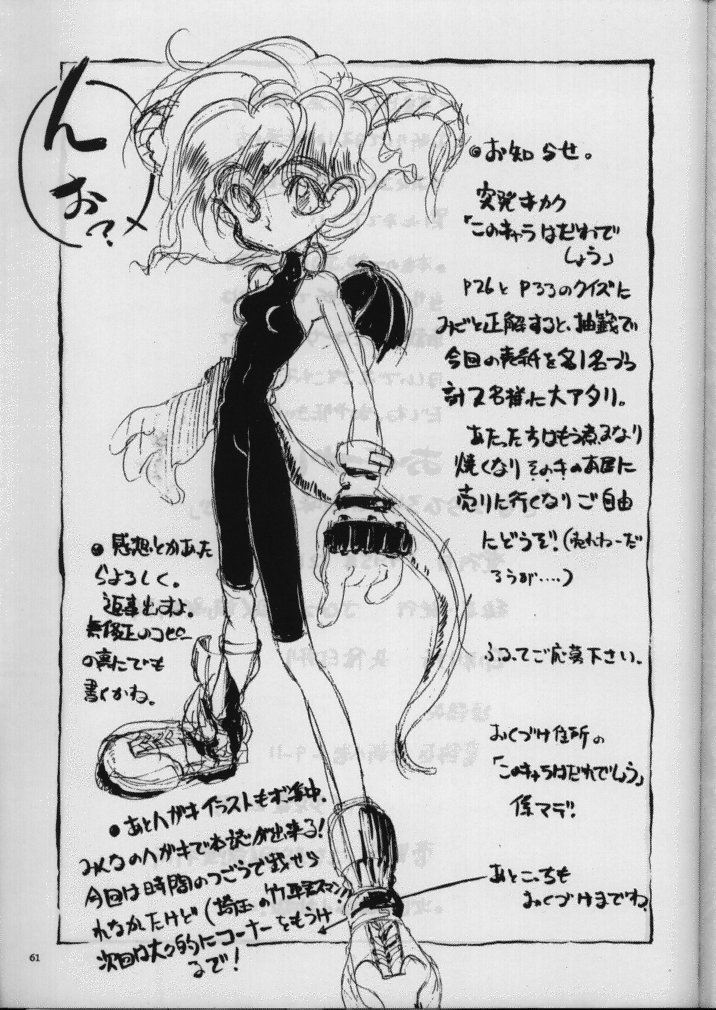 ん
お?
●お知らせ。
突発キカク
「このキャラはだれで
しょう」
P26とP33のクイズに
みごと正解すると、抽籤で
今回の表紙を各1名づつ
計2名様に大アタリ。
あたった方はもう煮るなり
焼くなりその手のお店に
売りに行くなりご自由
にどうぞ!(売れねーだ
ろうが‥‥)
ふるってご応募下さい。
おくづけ住所の
「このキャラはだれでしょう」
係マデ!
あとこっちも
おくづけまでね。
●感想とかあた
らよろしく。
返事出すよ。
無修正のコピー
の裏にでも
書くかね。
●あとハガキイラストもボ集中。
みんなのハガキで本誌が出来る!
今回は時間のつごうで載せら
れなかたけど(埼玉の竹
スマン!)
次回は大々的にコーナーをもうけ
るで!
61